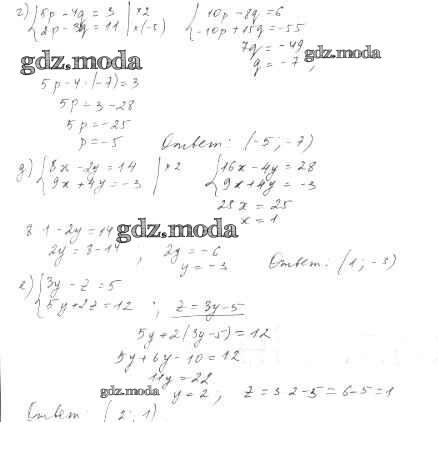 г) { 5p - 4q = 3 | ×2
2p - 3q = 11 | ×(-5)
{ 10p - 8q = 6
-10p + 15q = -55
7q = -49
q = -7,
gdz.moda
gdz.moda
5p - 4·(-7) = 3
5p = 3 - 28
5p = -25
p = -5
Ответ: (-5; -7)
д) { 8x - 2y = 14 | ×2
9x + 4y = -3
{ 16x - 4y = 28
9x + 4y = -3
25x = 25
x = 1
8·1 - 2y = 14
gdz.moda
2y = 8 - 14, 2y = -6
y = -3
Ответ: (1; -3)
е) { 3y - z = 5
5y + 2z = 12 ; z = 3y - 5
5y + 2(3y - 5) = 12
5y + 6y - 10 = 12
11y = 22
gdz.moda
y = 2; z = 3·2 - 5 = 6 - 5 = 1
Ответ: (2; 1)